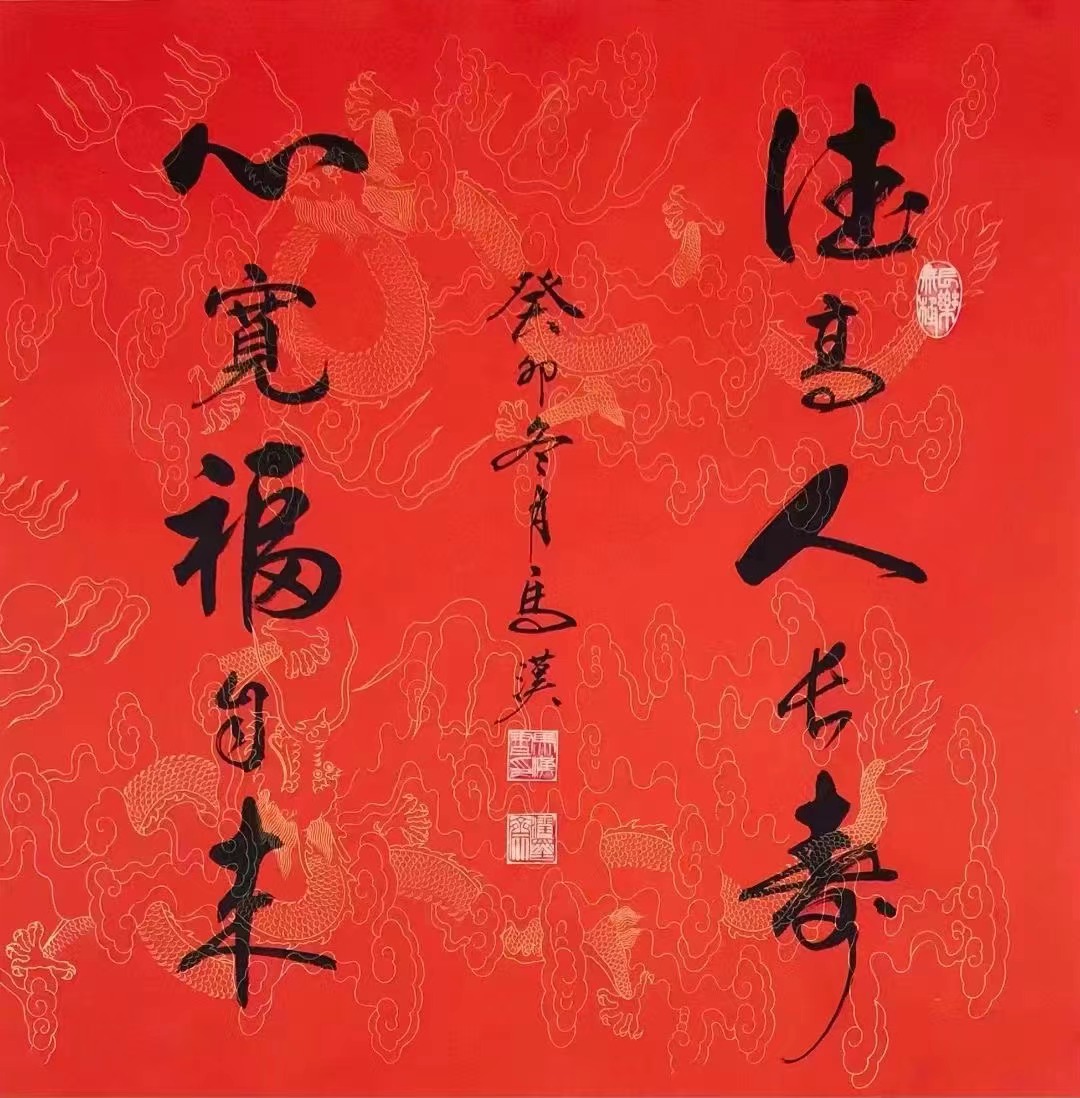 德高人长寿
癸卯冬月馬漢
心寬福自来